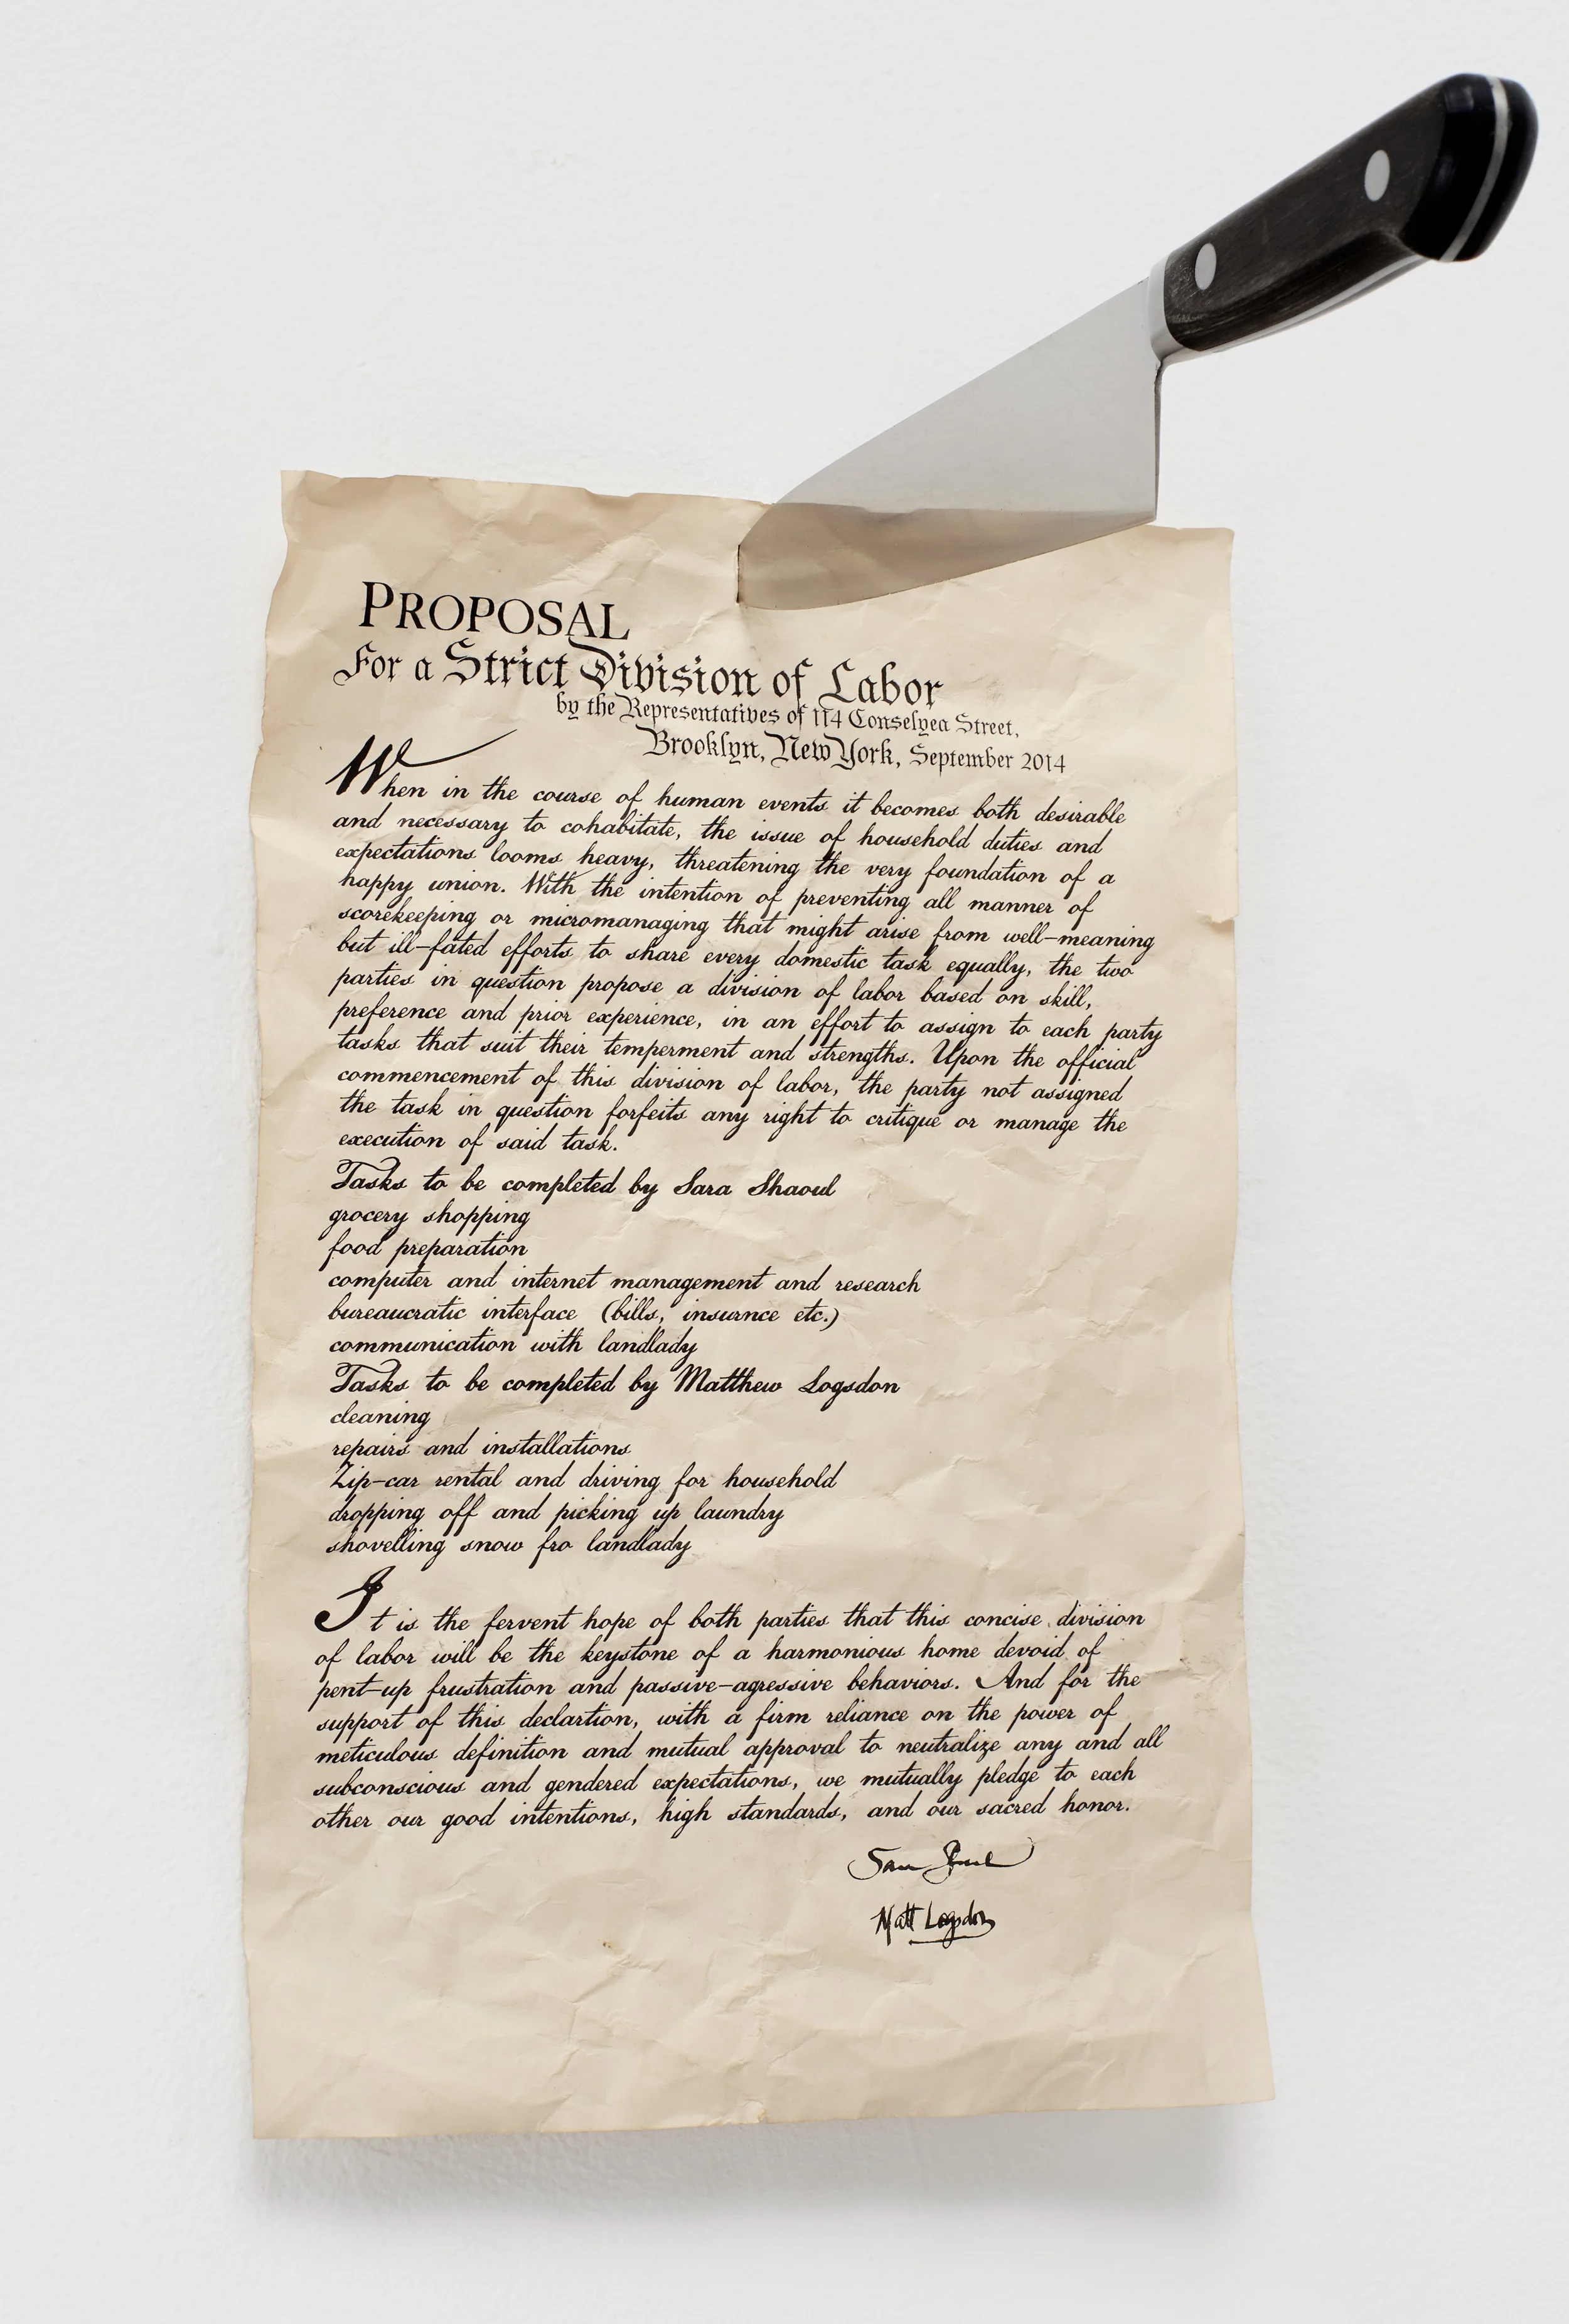 PROPOSAL
For a Strict Division of Labor
by the Representatives of 114 Conselyea Street,
Brooklyn, New York, September 2014
When in the course of human events it becomes both desirable
and necessary to cohabitate, the issue of household duties and
expectations looms heavy, threatening the very foundation of a
happy union. With the intention of preventing all manner of
scorekeeping or micromanaging that might arise from well-meaning
but ill-fated efforts to share every domestic task equally, the two
parties in question propose a division of labor based on skill,
preference and prior experience, in an effort to assign to each party
tasks that suit their temperment and strengths. Upon the official
commencement of this division of labor, the party not assigned
the task in question forfeits any right to critique or manage the
execution of said task.
Tasks to be completed by Sara Shaoul
grocery shopping
food preparation
computer and internet management and research
bureaucratic interface (bills, insurnce etc.)
communication with landlady
Tasks to be completed by Matthew Logsdon
cleaning
repairs and installations
Zip-car rental and driving for household
dropping off and picking up laundry
shovelling snow fro landlady
It is the fervent hope of both parties that this concise division
of labor will be the keystone of a harmonious home devoid of
pent-up frustration and passive-agressive behaviors. And for the
support of this declartion, with a firm reliance on the power of
meticulous definition and mutual approval to neutralize any and all
subconscious and gendered expectations, we mutually pledge to each
other our good intentions, high standards, and our sacred honor.
Matt Logsdon